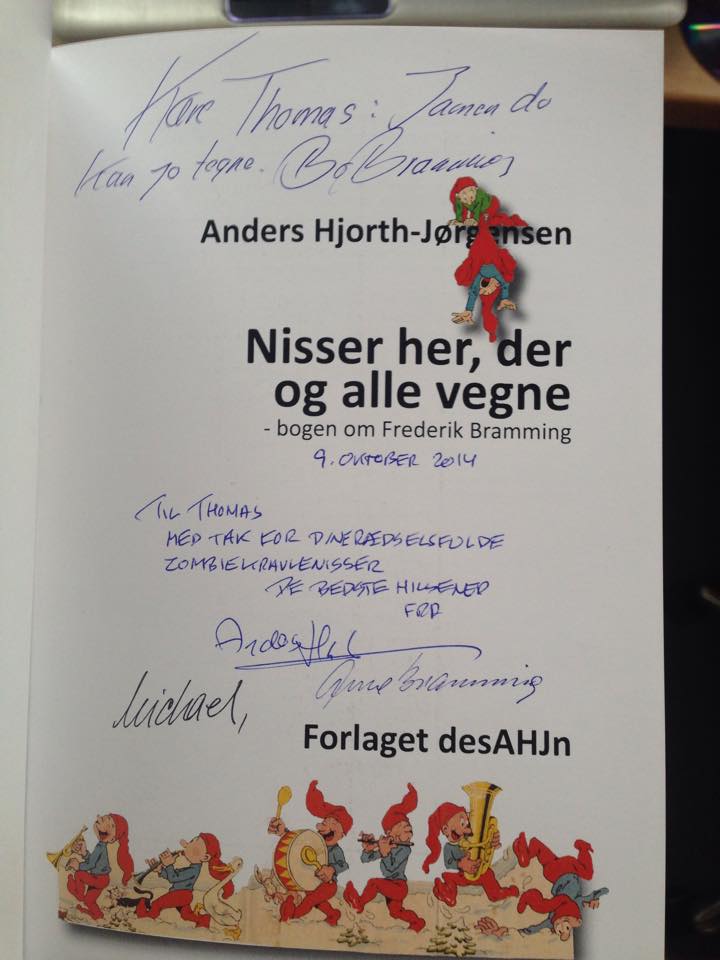 Kære Thomas: Jamen du
kan jo tegne. Bo Bramming
Anders Hjorth-Jørgensen
Nisser her, der
og alle vegne
- bogen om Frederik Bramming
9. OKTOBER 2014
TIL THOMAS
MED TAK FOR DINE RÆDSELSFULDE
ZOMBIEKRAVLENISSER
DE BEDSTE HILSENER
FRA
Anders
Bramming
Michael,
Forlaget desAHJn